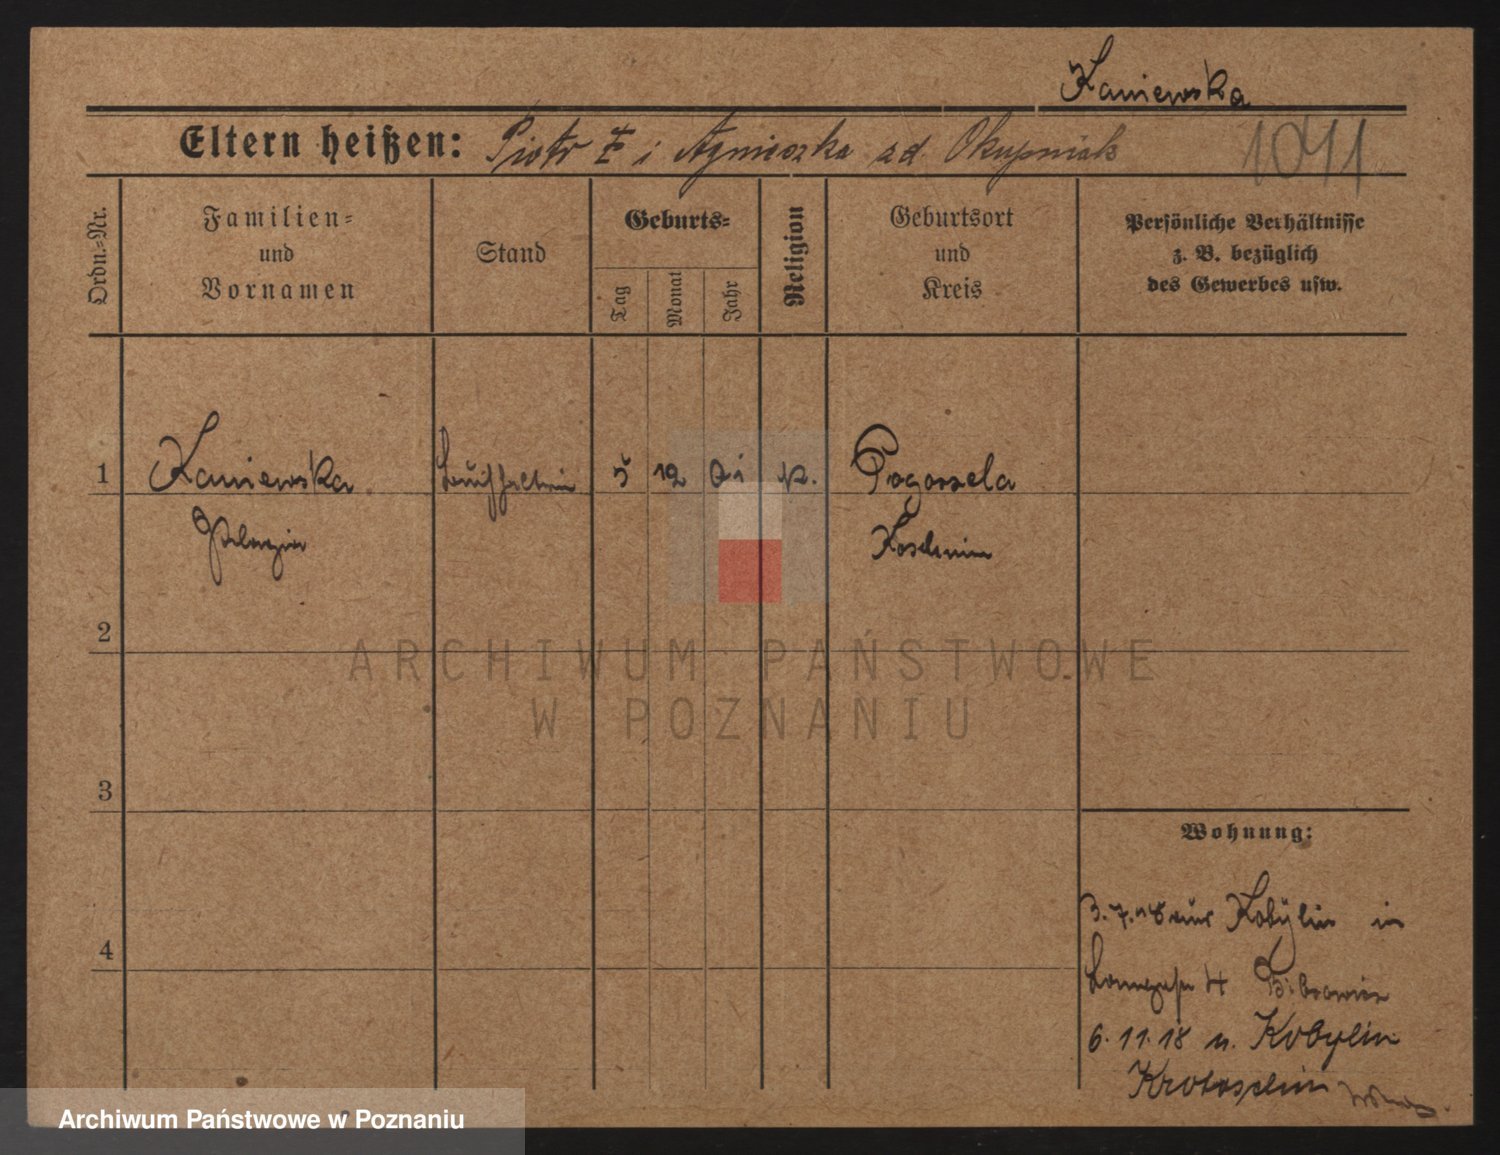 Kaniewska
Eltern heißen: Piotr K i Agnieszka zd. Okupniak 1041
Ordn.-Nr.
Familien-
und
Vornamen
Stand
Geburts-
Tag
Monat
Jahr
Religion
Geburtsort
und
Kreis
Persönliche Verhältnisse
z. B. bezüglich
des Gewerbes usw.
1 Kaniewska 5 12 01 k. Pogorzela
Pelagia Koschmin
2
ARCHIWUM PAŃSTWOWE
W POZNANIU
3
Wohnung:
3.7.18 aus Kobylin in
4
6.11.18 n. Kobylin
Krotoschin
Archiwum Państwowe w Poznaniu